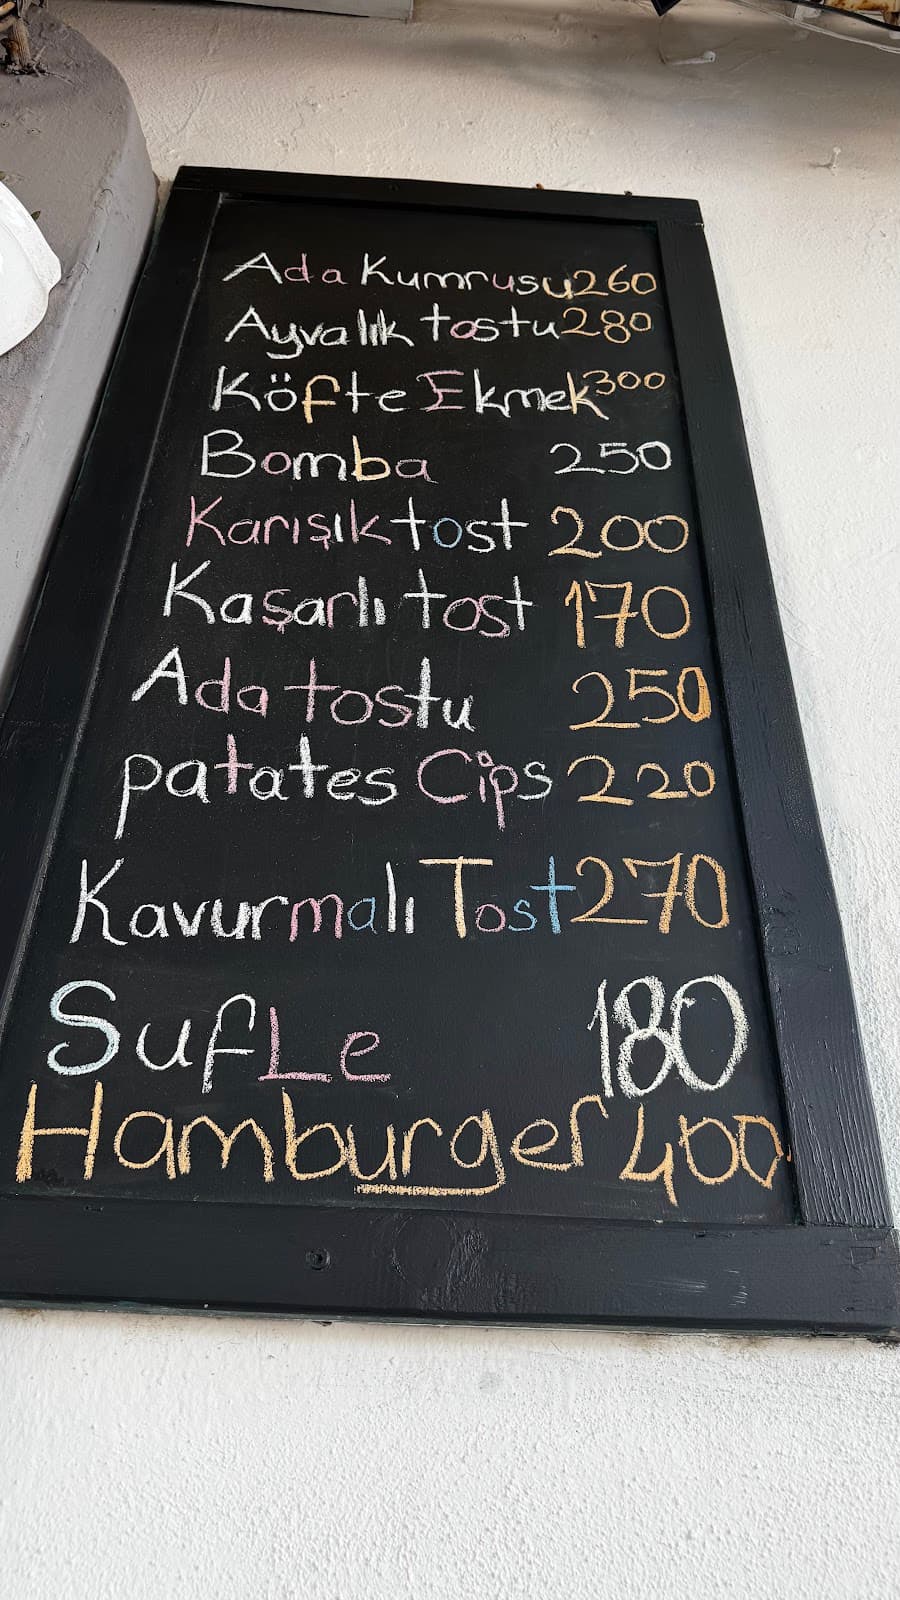 Ada Kumrusu 260
Ayvalık tostu 280
Köfte Ekmek 300
Bomba 250
Karışık tost 200
Kaşarlı tost 170
Ada tostu 250
patates Cips 220
Kavurmalı Tost 270
SufLe 180
Hamburger 400